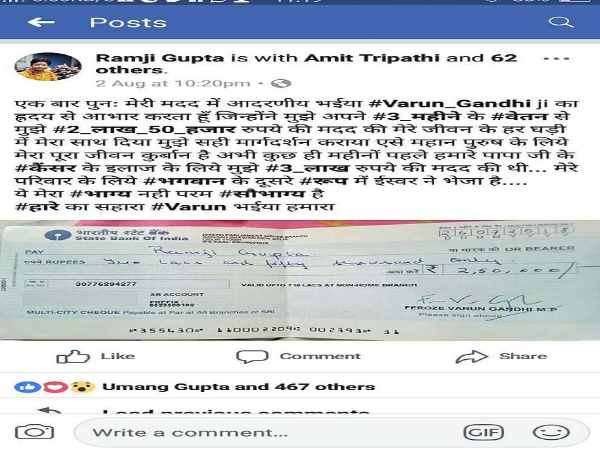 Posts
Ramji Gupta is with Amit Tripathi and 62
others.
2 Aug at 10:20pm •
एक बार पुनः मेरी मदद में आदरणीय भईया #Varun_Gandhi ji का
ह्रदय से आभार करता हूँ जिन्होंने मुझे अपने #3_महीने के #वेतन से
मुझे #2_लाख_50_हजार रुपये की मदद की मेरे जीवन के हर घड़ी
में मेरा साथ दिया मुझे सही मार्गदर्शन कराया एसे महान पुरुष के लिये
मेरा पूरा जीवन कुर्बान है अभी कुछ ही महीनों पहले हमारे पापा जी के
#कैंसर के इलाज के लिये मुझे #3_लाख रुपये की मदद की थी... मेरे
परिवार के लिये #भगवान के दूसरे #रूप में ईस्वर ने भेजा है....
ये मेरा #भाग्य नही परम #सौभाग्य है
#हारे का सहारा #Varun भईया हमारा
भारतीय स्टेट बैंक
State Bank Of India
PAY Ramji Gupta या धारक को OR BEARER
रुपये RUPEES Two Lacs and fifty thousand only
अदा करें ₹ 2,50,000/
30776294277
VALID UPTO ₹ 10 LACS AT NON-HOME BRANCH
SB ACCOUNT
PREFIX
FEROZE VARUN GANDHI M.P
Please sign above
MULTI-CITY CHEQUE Payable at Par at All Branches of SBI
Like
Comment
Share
Umang Gupta and 467 others
Load previous comments
Write a comment...
GIF